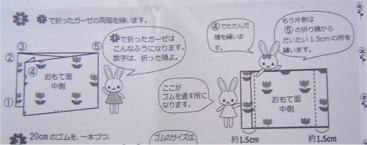 2 1で折ったガーゼの両脇を縫います。
② ③ ④ ⑤
①
おもて面
中側
1で折ったガーゼは
こんなふうになります。
数字は、折った順よ。
④でたたんだ
端を縫います。
ここが
ゴムを通す所に
なります。
もう片側は
⑤の折り線から
だいたい1.5cmの所を
縫います。
おもて面
中側
約1.5cm 約1.5cm
3 20cmのゴムを、一本づつ、
ゴムのサイズは、